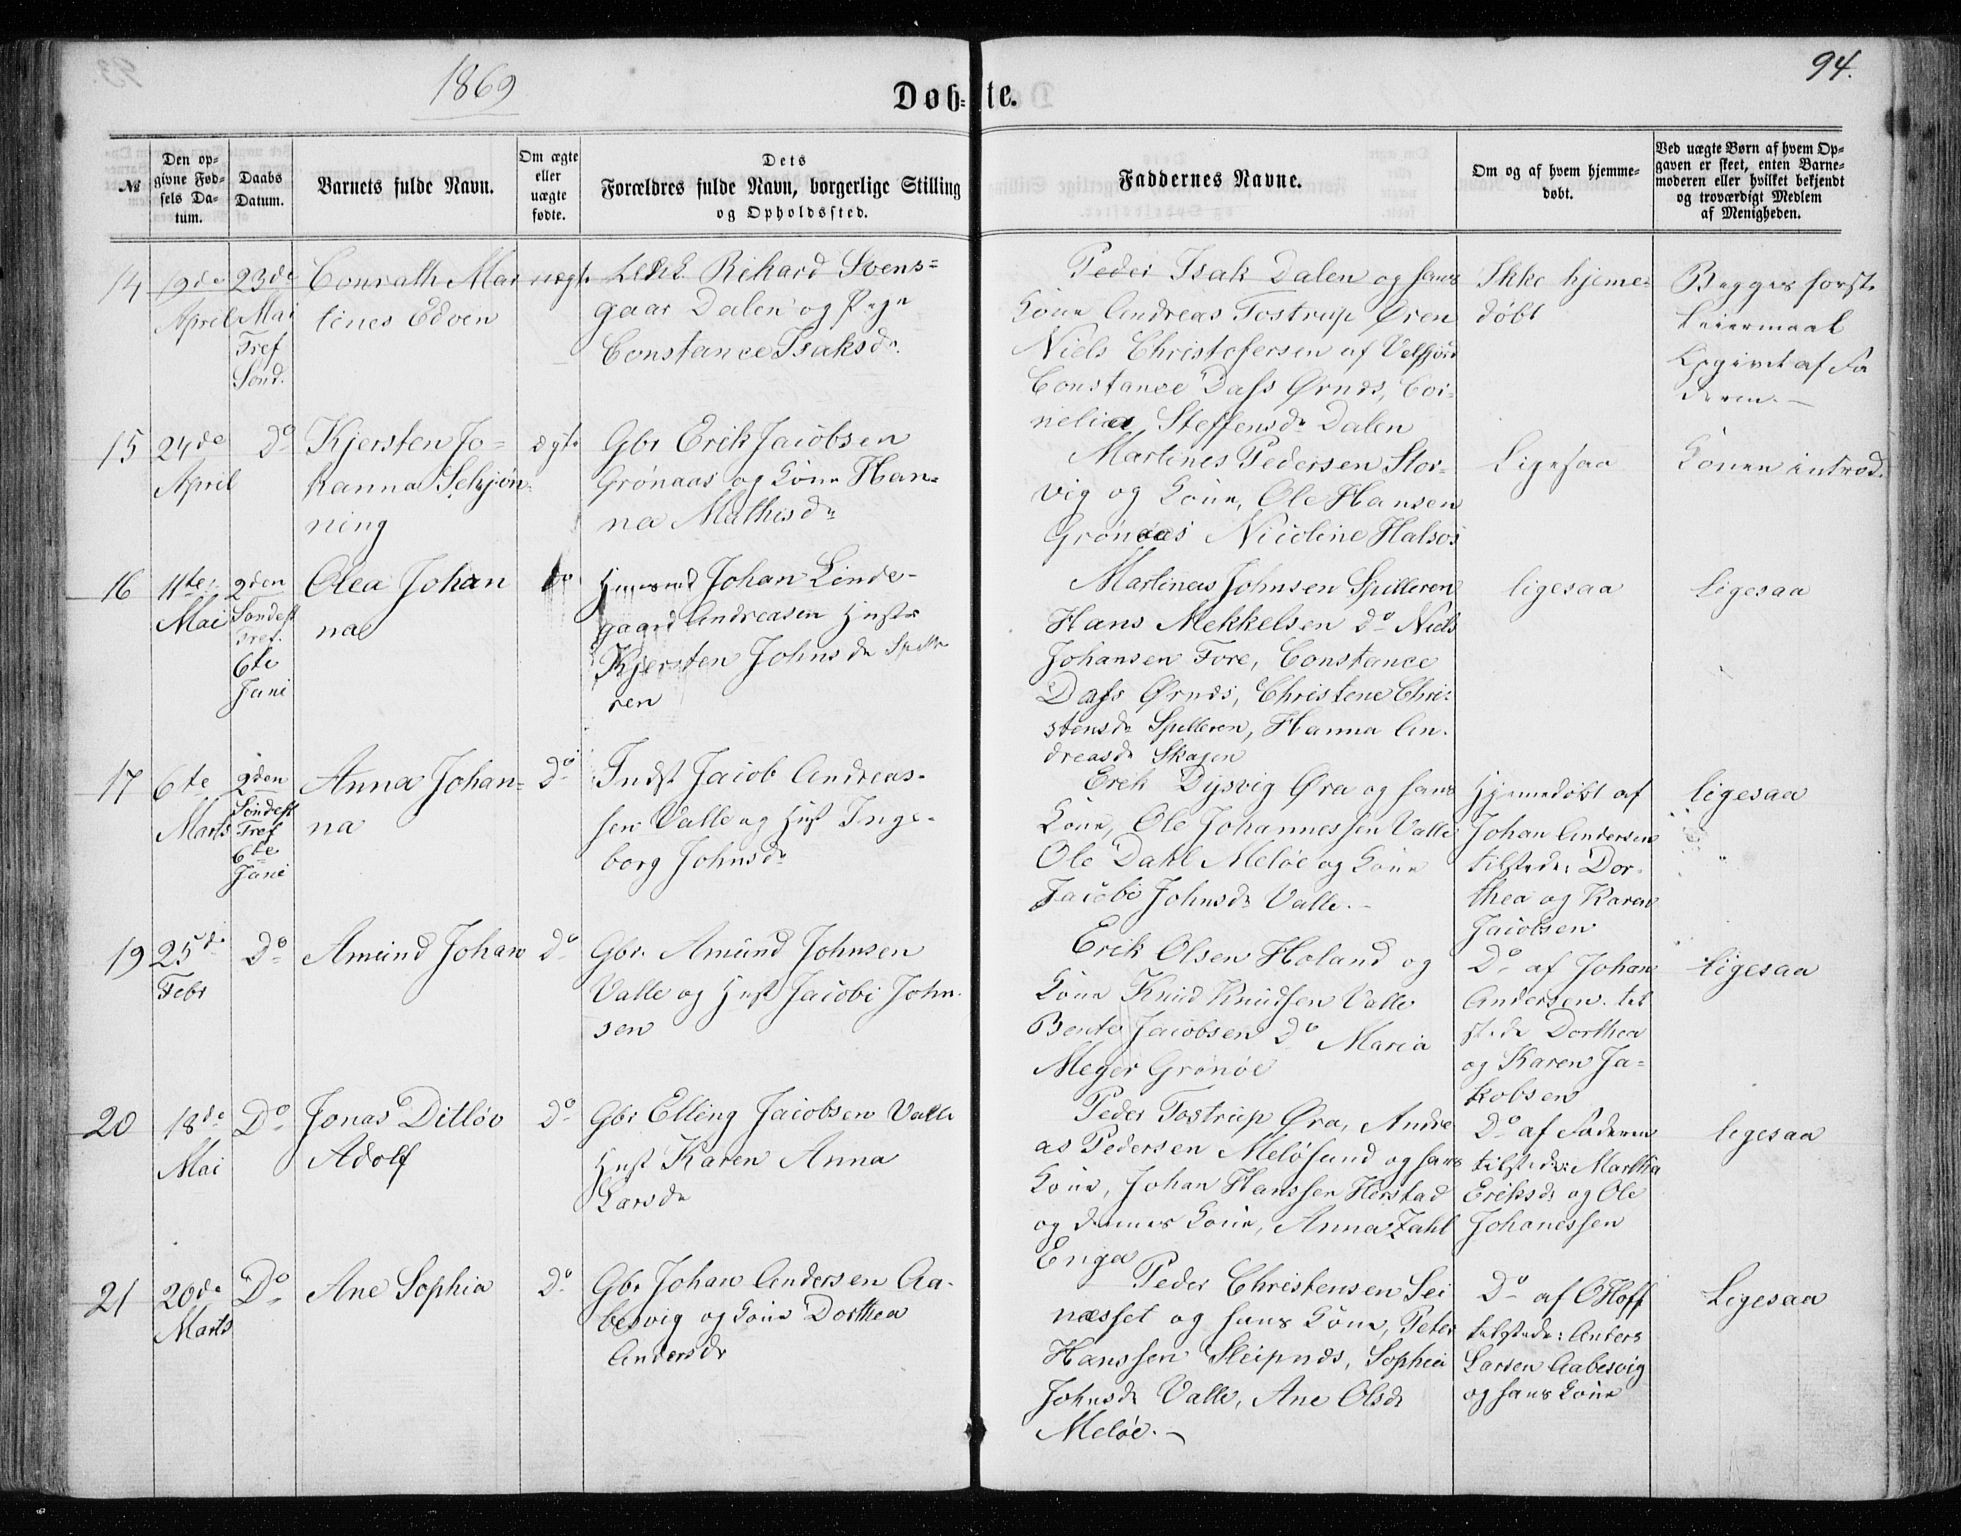 1869
94.
Døb-te.
№
Den op-
givne Fød-
sels Da-
tum.
Daabs
Datum.
Barnets fulde Navn.
Om ægte
eller
uægte
fødte.
Dets
Forældres fulde Navn, borgerlige Stilling
og Opholdssted.
Faddernes Navne.
Om og af hvem hjemme-
døbt.
Ved uægte Børn af hvem Op-
gaven er skeet, enten Barne-
moderen eller hvilket bekjendt
og troværdigt Medlem
af Menigheden.
14
19de
April
23de
Mai
Tref
Sönd.
Conrath Mar
tines Edven
uægte
Rikard Svens-
gaar Dalen og Pige
Constance Isaksdr.
Peder Isak Dalen og hans
Kone Andreas Tostrup Øren
Niels Christofersen af Velfjord
Constance Dass Ørnes, Cor-
nelia Steffensdr Dalen
Ikke hjeme-
døbt
Begges første
Leiermaal
Opgivet af Fa
deren.-
15
24de
April
Do
Kjersten Jo-
hanna Schjøn-
ning
ægte
Gbr Erik Jacobsen
Grønaas og Kone Han-
na Mathisdr
Martines Pedersen Stor-
vig og Kone, Ole Hansen
Grønaas Nicoline Halsos
Ligesaa
Konen introd.
16
11te
Mai
2den
Sondest
Tref.
6te
Juni
Olea Johan
na
Do
Huusmd Johan Linde-
gaard Andreasen Hustr
Kjersten Johnsdr Spille
ren
Martines Johnsen Spilleren
Hans Mekkelsen Do Niels
Johansen Fore, Constance
Dass Ørnes, Christene Chri-
stensdr Spilleren, Hanna An-
dreasdr Skagen
ligesaa
Ligesaa
17
6te
Marts
2den
Søndest
Tref
6te
Juni
Anna Johan-
na
Do
Indst Jacob Andreas-
sen Valle og Hust Inge-
borg Johnsdr
Erik Dysvig Øra og hans
Kone, Ole Johannessen Valle
Ole Dahl Meløe og Kone
Jacobi Johnsdr Valle.-
Hjemmedøbt af
Johan Andersen
tilstede: Dor-
thea og Karen
Jacobsen
ligesaa
19
25de
Febr
Do
Amund Johan
Do
Gbr. Amund Johnsen
Valle og Hust Jacobi John-
sen
Erik Olsen Holand og
Kone Knud Knudsen Valle
Bente Jacobsen Do Maria
Meger Grönøe
Do af Johan
Andersen. til
stede Dorthea
og Karen Ja-
kobsen
Ligesaa
20
18de
Mai
Do
Jonas Ditløv
Adolf
Do
Gbr Elling Jacobsen Valle
Hust Karen Anna
Larsdr
Peder Tostrup Øra, Andre
as Pedersen Meløsund og hans
Kone, Johan Hanssen Herstad
og dennes Kone, Anna Zahl
Enga
Do af Faderen
tilstede: Martha
Eriksdr og Ole
Johanessen
ligesaa
21
20de
Marts
Do
Ane Sophia
Do
Gbr Johan Andersen Aa-
besvig og Kone Dorthea
Andersdr
Peder Christensen Sei
næsset og hans Kone, Peter
Hanssen Sleipnes, Sophia
Johnsdr Valle, Ane Olsdr
Meløe.-
Do af O Hoff
tilstede: Anders
Larsen Aabesvig
og hans Kone
Ligesaa